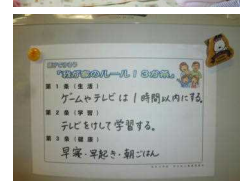 "我が家のルール！3か条"
第1条（生活）
ゲームやテレビは1時間以内にする。
第2条（学習）
テレビをけして学習する。
第3条（健康）
早寝・早起き・朝ごはん